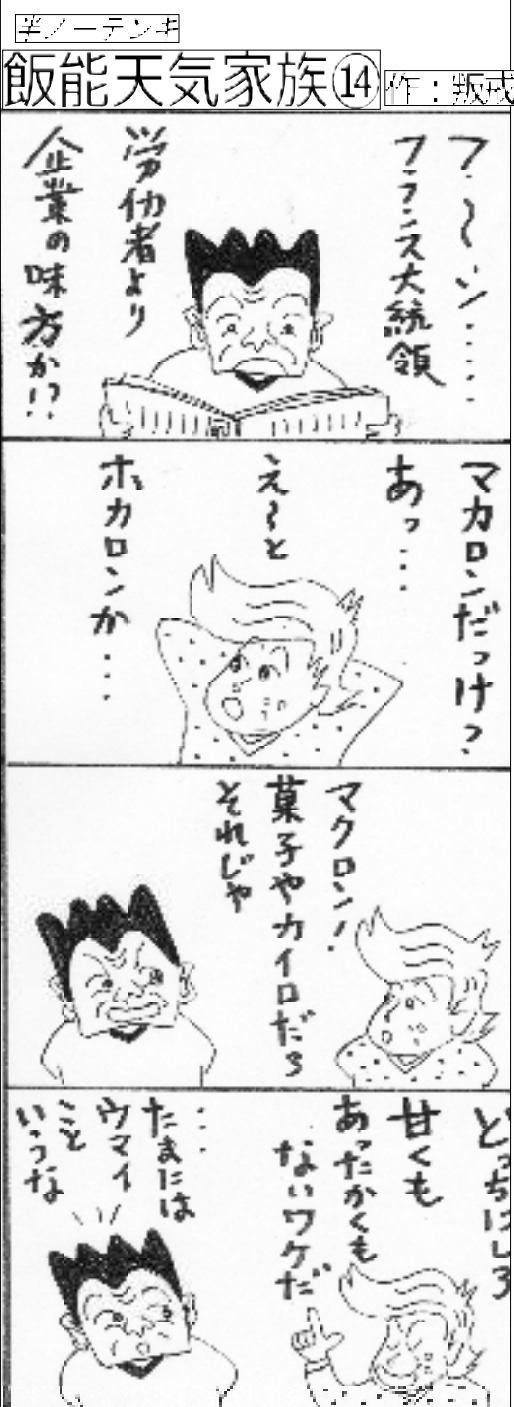 半ノーテンキ
飯能天気家族⑭
作：叛戒
フ〜ン.....
フランス大統領
労働者より
企業の味方か!?
マカロンだっけ?
あっ...
え〜と
ホカロンか...
マクロン!
菓子やカイロだろ
それじゃ
どっちにしろ
甘くも
あったかくも
ないワケだ
...
たまには
ウマイ
こと
いうな